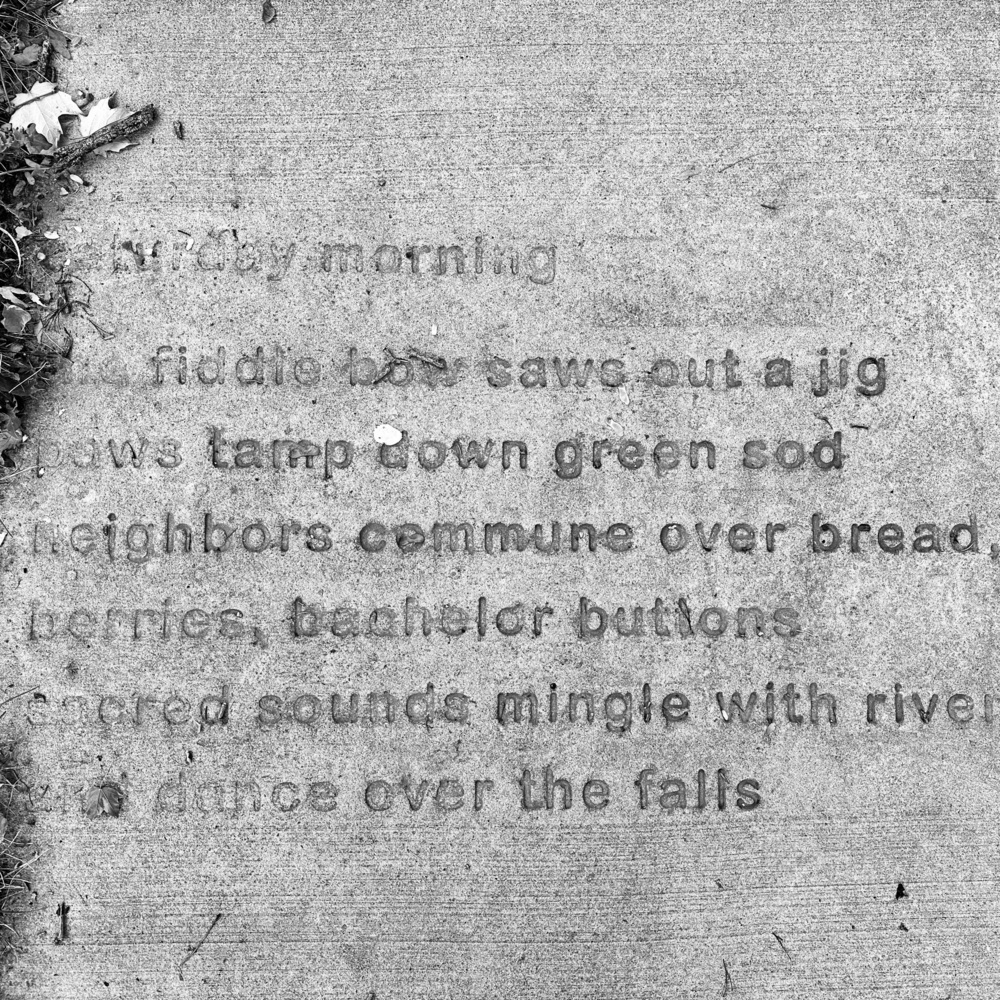 saturday morning
the fiddle bow saws out a jig
paws tamp down green sod
neighbors commune over bread,
berries, bachelor buttons
sacred sounds mingle with river
and dance over the falls